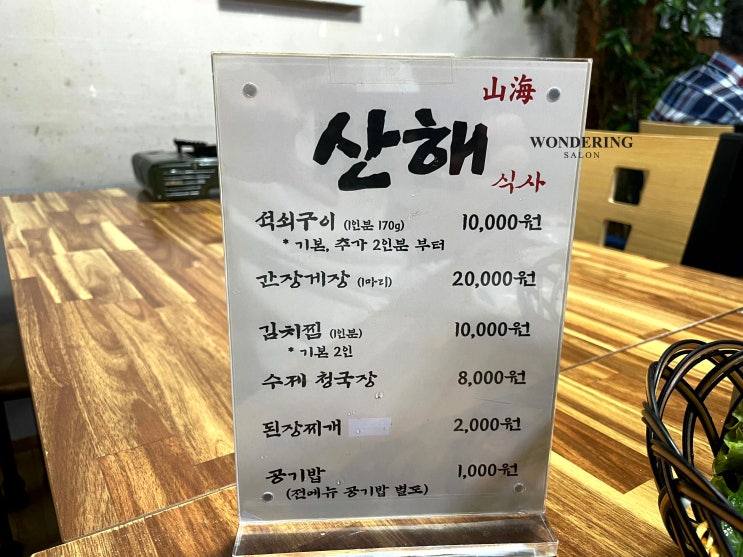 山海
산해
WONDERING
SALON
식사
석쇠구이 (1인분 170g) 10,000원
* 기본, 추가 2인분 부터
간장게장 (1마리) 20,000원
김치찜 (1인분) 10,000원
* 기본 2인
수제 청국장 8,000원
된장찌개 2,000원
공기밥 1,000원
(전메뉴 공기밥 별도)